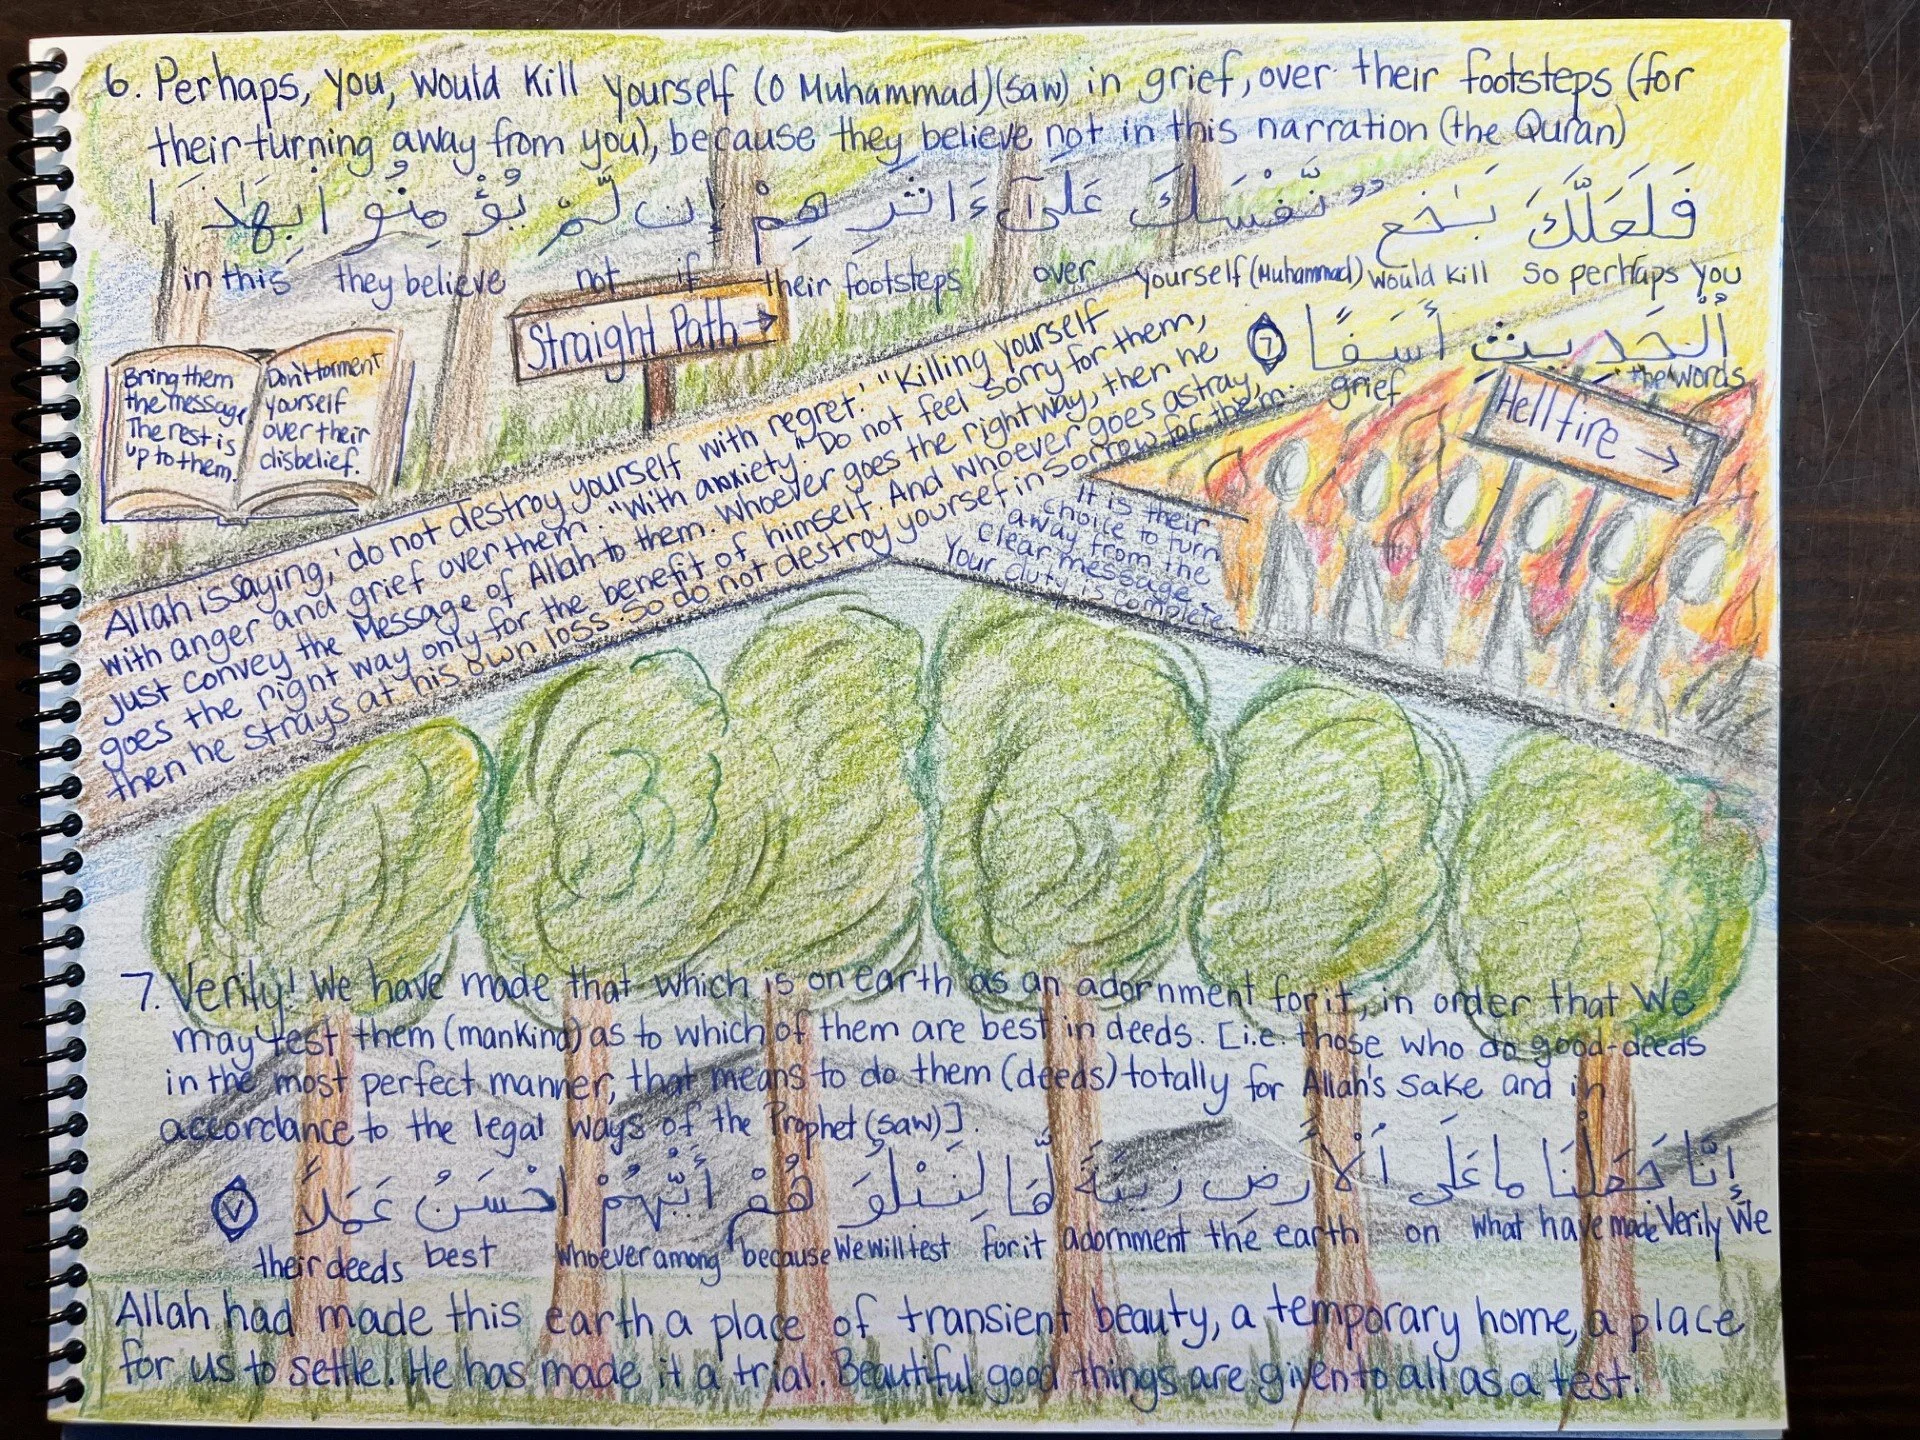 6. Perhaps, you, would kill yourself (O Muhammad)(saw) in grief, over their footsteps (for
their turning away from you), because they believe not in this narration (the Quran)
فَلَعَلَّكَ بَـٰخِع نَّفْسَكَ عَلَىٰٓ ءَاثَـٰرِهِمْ إِن لَّمْ يُؤْمِنُوا۟ بِهَـٰذَا
in this they believe not if their footsteps over yourself (Muhammad) would kill so perhaps you
ٱلْحَدِيثِ أَسَفًا 7
grief the words
Straight Path →
Hellfire →
Bring them
the message
The rest is
up to them.
Don't torment
yourself
over their
disbelief.
Allah is saying, 'do not destroy yourself with regret.' "Killing yourself
with anger and grief over them. "With anxiety." Do not feel sorry for them,
just convey the Message of Allah to them. Whoever goes the right way, then he
goes the right way only for the benefit of himself. And whoever goes astray,
then he strays at his own loss. So do not destroy yoursef in sorrow for them.
It is their
choice to turn
away from the
clear message -
Your duty is complete
7. Verily! We have made that which is on earth as an adornment for it, in order that We
may test them (mankind) as to which of them are best in deeds. [i.e. those who do good-deeds
in the most perfect manner, that means to do them (deeds) totally for Allah's sake and in
accordance to the legal ways of the Prophet (saw)].
إِنَّا جَعَلْنَا مَا عَلَى ٱلْأَرْضِ زِينَةً لَّهَا لِنَبْلُوَهُمْ أَيُّهُمْ احْسَنُ عَمَلًا ٧
their deeds best whoever among because We will test for it adornment the earth on what have made Verily We
Allah had made this earth a place of transient beauty, a temporary home, a place
for us to settle. He has made it a trial. Beautiful good things are given to all as a test.